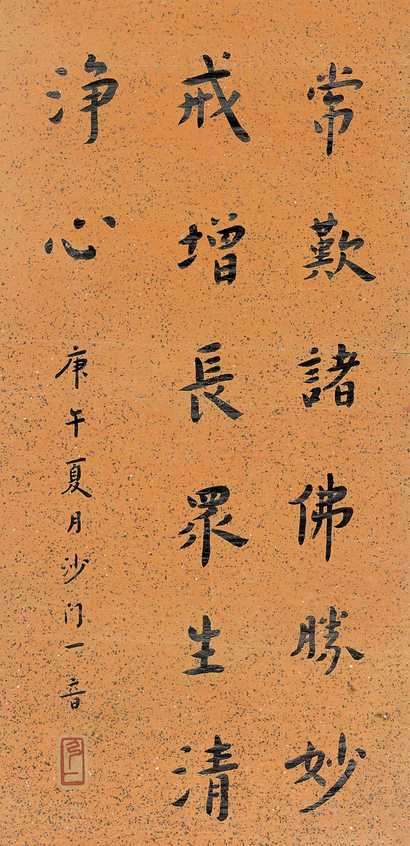 常歎諸佛勝妙
戒增長眾生清
淨心
庚午夏月沙门一音